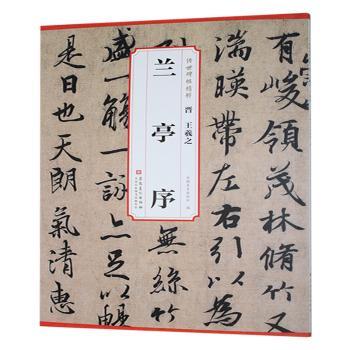 有峻領茂林脩竹又
湍暎帶左右引以為
传世碑帖精粹
晋 王羲之
兰亭序
無絲竹
盛一觴一詠亦足以暢
是日也天朗氣清惠